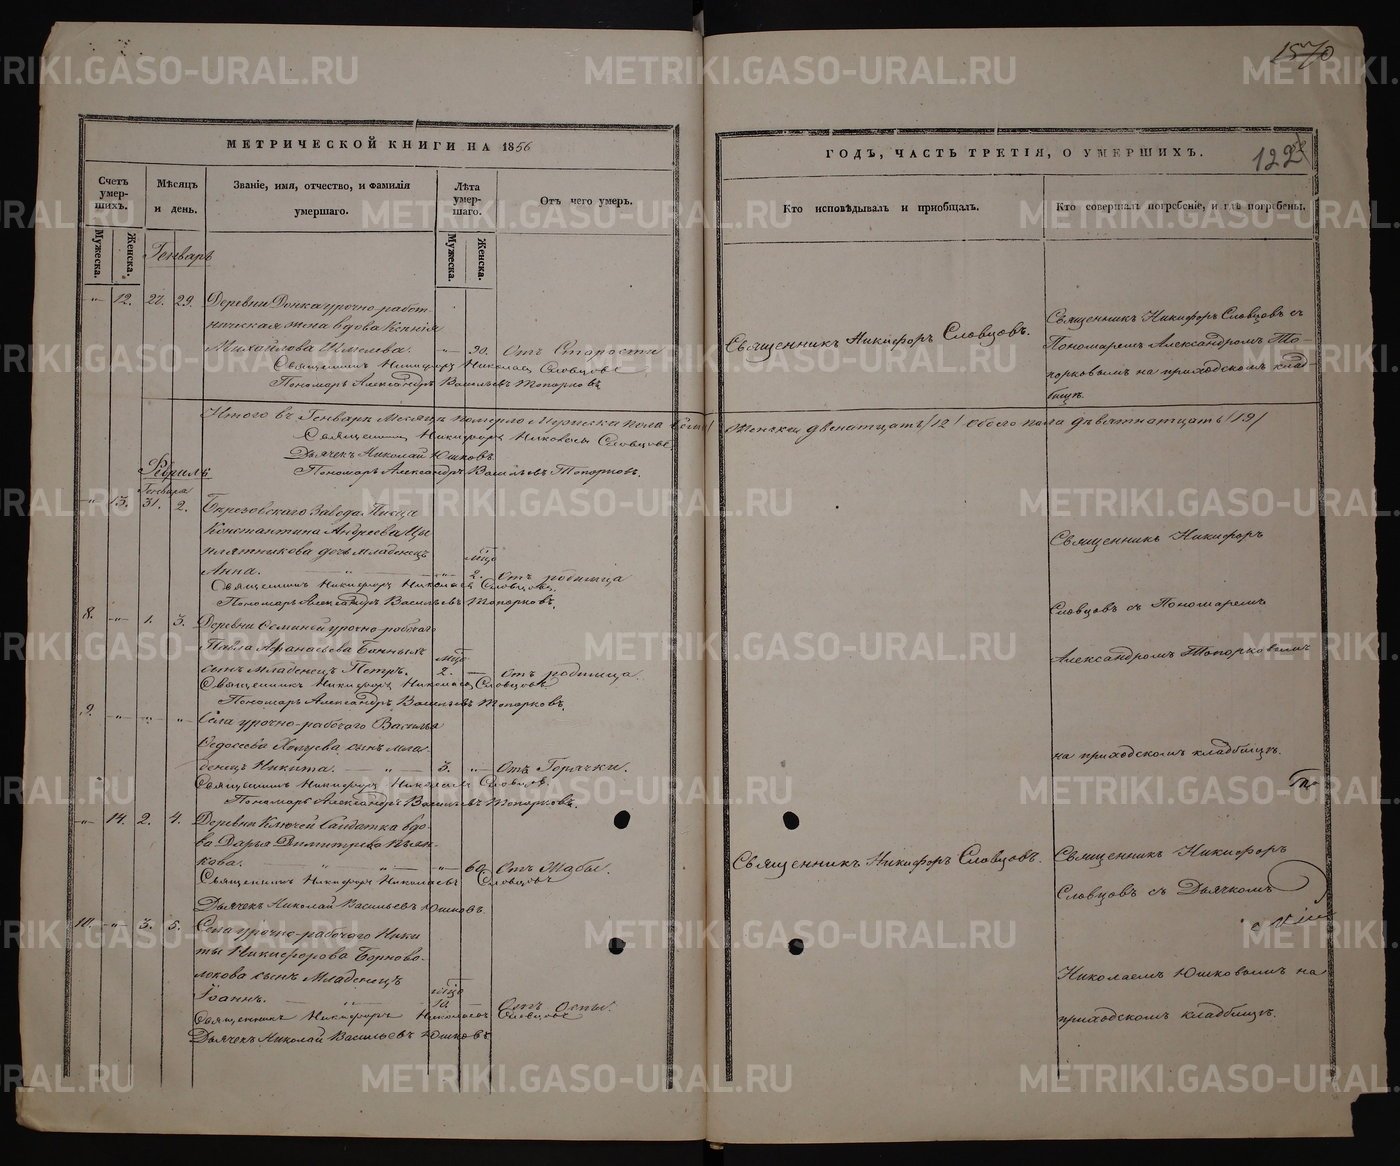 1570
МЕТРИЧЕСКОЙ КНИГИ НА 1856
Счетъ умер-шихъ.
Мѣсяцъ и день.
Званіе, имя, отчество, и фамилія умершаго.
Лѣта умер-шаго.
Отъ чего умеръ.
Мужеска.
Женска.
Мужеска.
Женска.
Генварь
12. 27. 29. Деревни урочно-работ-
ническая жена вдова Ксенія
Михайлова Шмелева. 90. Отъ Старости
Священникъ Никифоръ Николаевъ Словцовъ
Пономарь Александръ Васильевъ Топорковъ
Итого въ Генварѣ Месяцѣ померло Мужеска пола
Священникъ Никифоръ Николаевъ Словцовъ
Дьячекъ Николай Юшковъ
Пономарь Александръ Васильевъ Топорковъ.
Генваря
13. 31. 2. Березовскаго Завода
Константина Андреева Цы
плятникова дочь младенецъ
Анна. 2. Отъ родимца
Священникъ Никифоръ Николаевъ Словцовъ
Пономарь Александръ Васильевъ Топорковъ.
8. 1. 3. Деревни урочно-рабочаго
Павла Афанасьева
сынъ младенецъ Петръ. 2. Отъ родимца.
Священникъ Никифоръ Николаевъ Словцовъ
Пономарь Александръ Васильевъ Топорковъ.
9. Села урочно-рабочаго Василья
Федосеева сынъ мла-
денецъ Никита. 3. Отъ Горячки.
Священникъ Никифоръ Николаевъ Словцовъ
Пономарь Александръ Васильевъ Топорковъ.
14. 2. 4. Деревни Ключей Солдатка вдо-
ва Дарья Димитрева Пьян-
кова. 60. Отъ
Священникъ Никифоръ Николаевъ Словцовъ
Дьячекъ Николай Васильевъ Юшковъ.
10. 3. 5. Села урочно-рабочаго Ники-
ты Никифорова Борново-
локова сынъ Младенецъ
Іоаннъ. 10. Отъ Оспы.
Священникъ Никифоръ Николаевъ Словцовъ
Дьячекъ Николай Васильевъ Юшковъ
ГОДЪ, ЧАСТЬ ТРЕТІЯ, О УМЕРШИХЪ.
122
Кто исповѣдывалъ и пріобщалъ.
Кто совершалъ погребеніе, и гдѣ погребены.
Священникъ Никифоръ Словцовъ.
Священникъ Никифоръ Словцовъ съ
Пономаремъ Александромъ То-
порковымъ на приходскомъ клад-
бищѣ.
Женска двенатцать /12/ обоего пола девятнатцать /19/
Священникъ Никифоръ
Словцовъ съ Пономаремъ
Александромъ Топорковымъ
на приходскомъ кладбищѣ.
Священникъ Никифоръ Словцовъ.
Священникъ Никифоръ
Словцовъ съ Дьячкомъ
Николаемъ Юшковымъ на
приходскомъ кладбищѣ.
METRIKI.GASO-URAL.RU